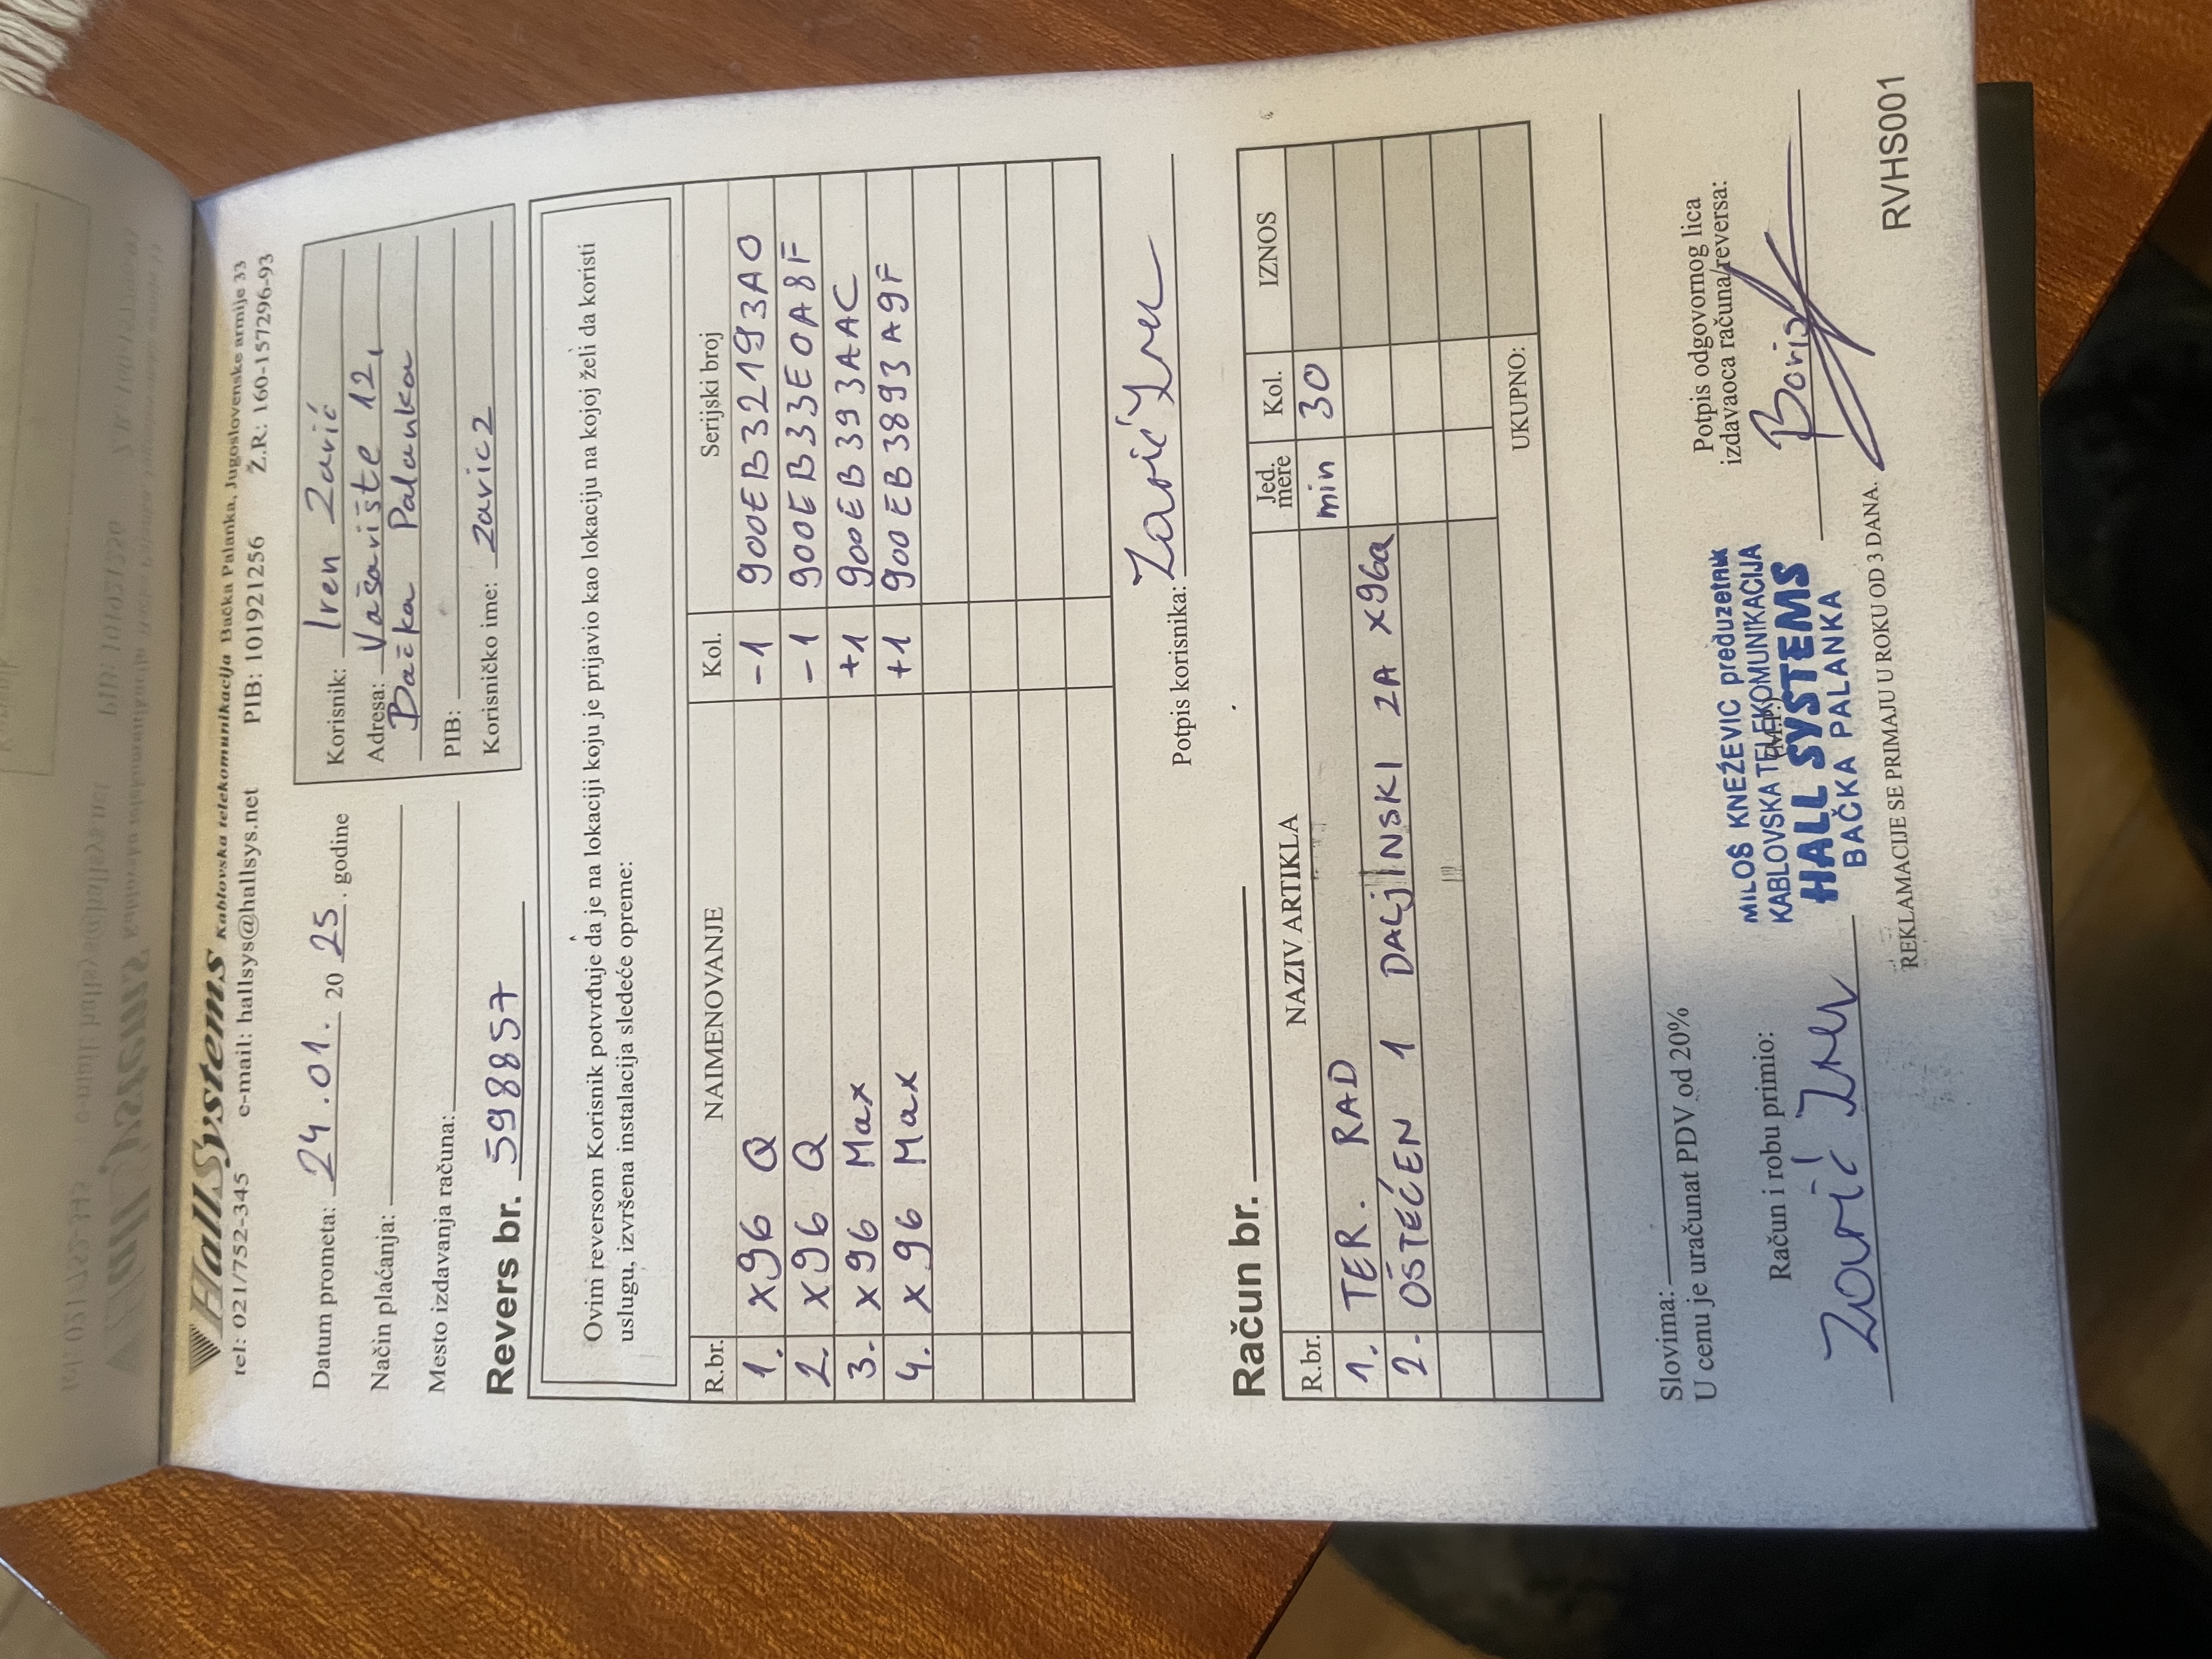 HallSystems Kablovska telekomunikacija Bačka Palanka, Jugoslovenske armije 33
tel: 021/752-345 e-mail: hallsys@hallsys.net PIB: 101921256 Ž.R: 160-157296-93
Datum prometa: 24.01. 20 25. godine
Način plaćanja:
Mesto izdavanja računa:
Korisnik: Iren Zarić
Adresa: Vašarište 12,
Bačka Palanka
PIB:
Korisničko ime: zaric2
Revers br. 598857
Ovim reversom Korisnik potvrđuje da je na lokaciji koju je prijavio kao lokaciju na kojoj želi da koristi
uslugu, izvršena instalacija sledeće opreme:
R.br. NAIMENOVANJE Kol. Serijski broj
1. x96 Q -1 900EB32193A0
2. x96 Q -1 900EB33E0A8F
3. x96 Max +1 900EB393AAC
4. x96 Max +1 900EB3893A9F
Potpis korisnika: Zarić Iren
Račun br.
R.br. NAZIV ARTIKLA Jed. mere Kol. IZNOS
1. TER. RAD min 30
2. OŠTEĆEN 1 DALJINSKI ZA x96a
UKUPNO:
Slovima:
U cenu je uračunat PDV od 20%
Račun i robu primio:
Zarić Iren
MILOŠ KNEŽEVIĆ preduzetnik
KABLOVSKA TELEKOMUNIKACIJA
M.P.
HALL SYSTEMS
BAČKA PALANKA
Potpis odgovornog lica
izdavaoca računa/reversa:
Boris
REKLAMACIJE SE PRIMAJU U ROKU OD 3 DANA.
RVHS001